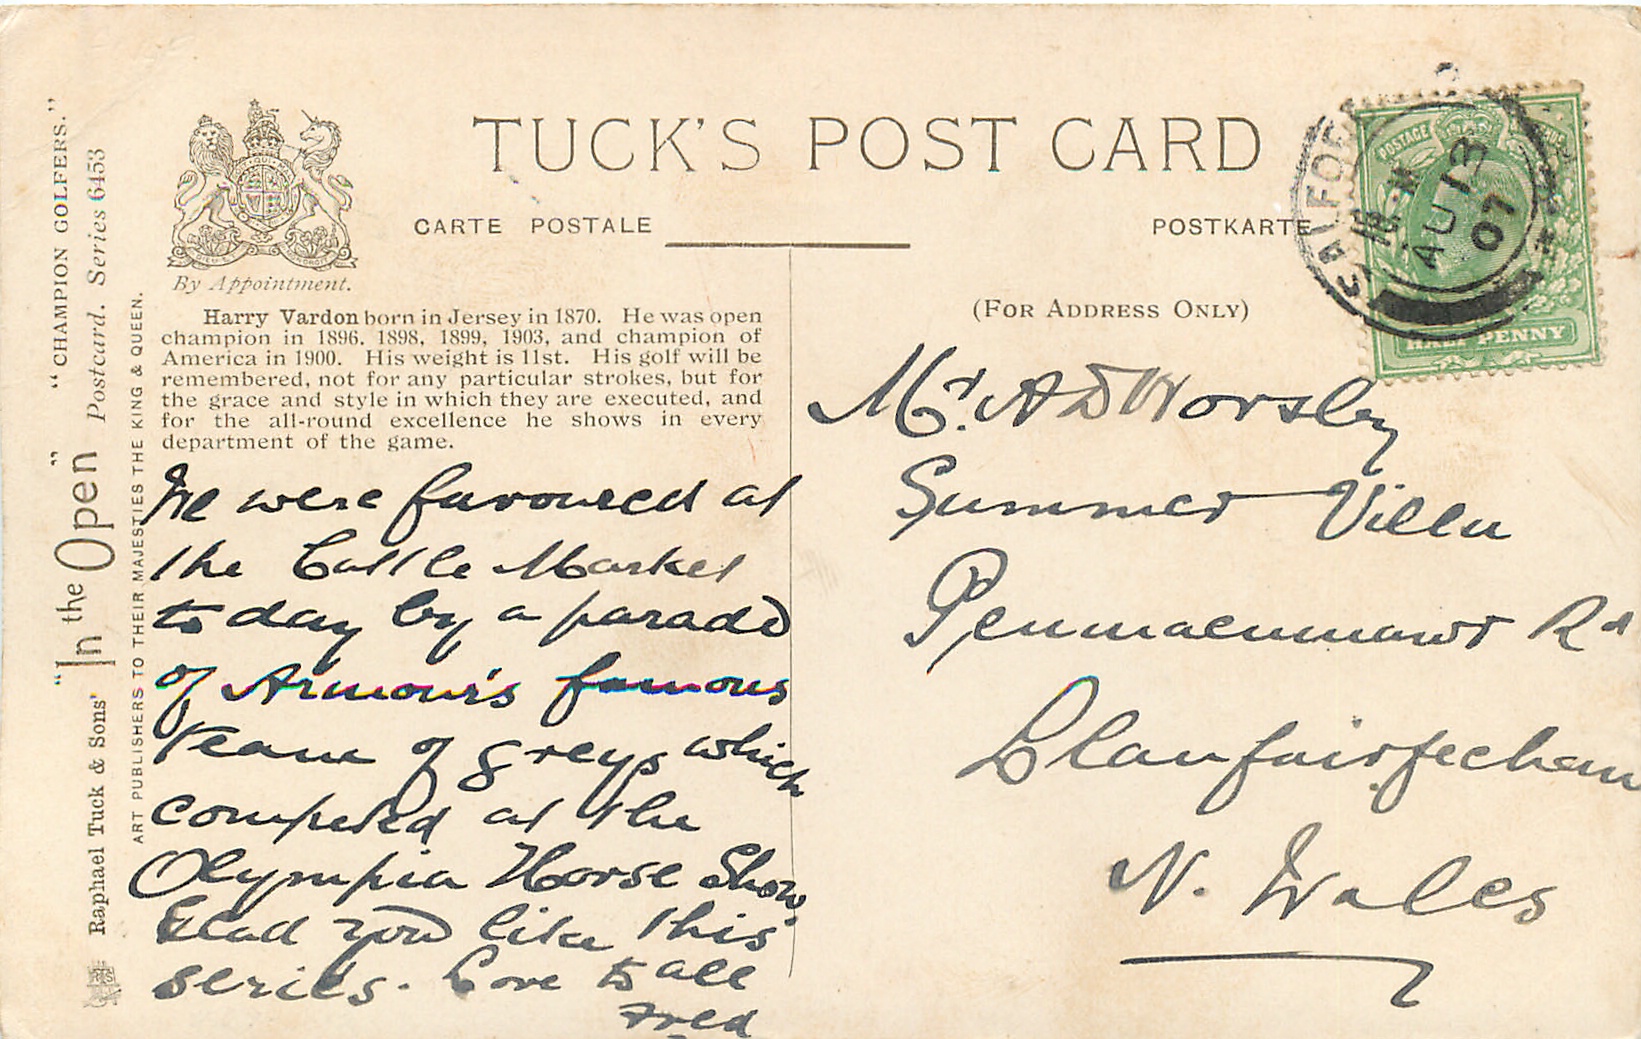 TUCK'S POST CARD
CARTE POSTALE
POSTKARTE
(FOR ADDRESS ONLY)
By Appointment.
Harry Vardon born in Jersey in 1870. He was open
champion in 1896, 1898, 1899, 1903, and champion of
America in 1900. His weight is 11st. His golf will be
remembered, not for any particular strokes, but for
the grace and style in which they are executed, and
for the all-round excellence he shows in every
department of the game.
We were favoured at
the Cattle Market
to day by a parade
of Armour's famous
team of greys which
competed at the
Olympia Horse Show.
Glad you like this
series. Love to all
Fred
Mr. A D Worsley
Summer Villa
Penmaenmawr Rd
Llanfairfechan
N. Wales
POSTAGE
HALF PENNY
SALFORD
AU 13
07
Raphael Tuck & Sons' "In the Open" Postcard. Series 6453
"CHAMPION GOLFERS."
ART PUBLISHERS TO THEIR MAJESTIES THE KING & QUEEN.